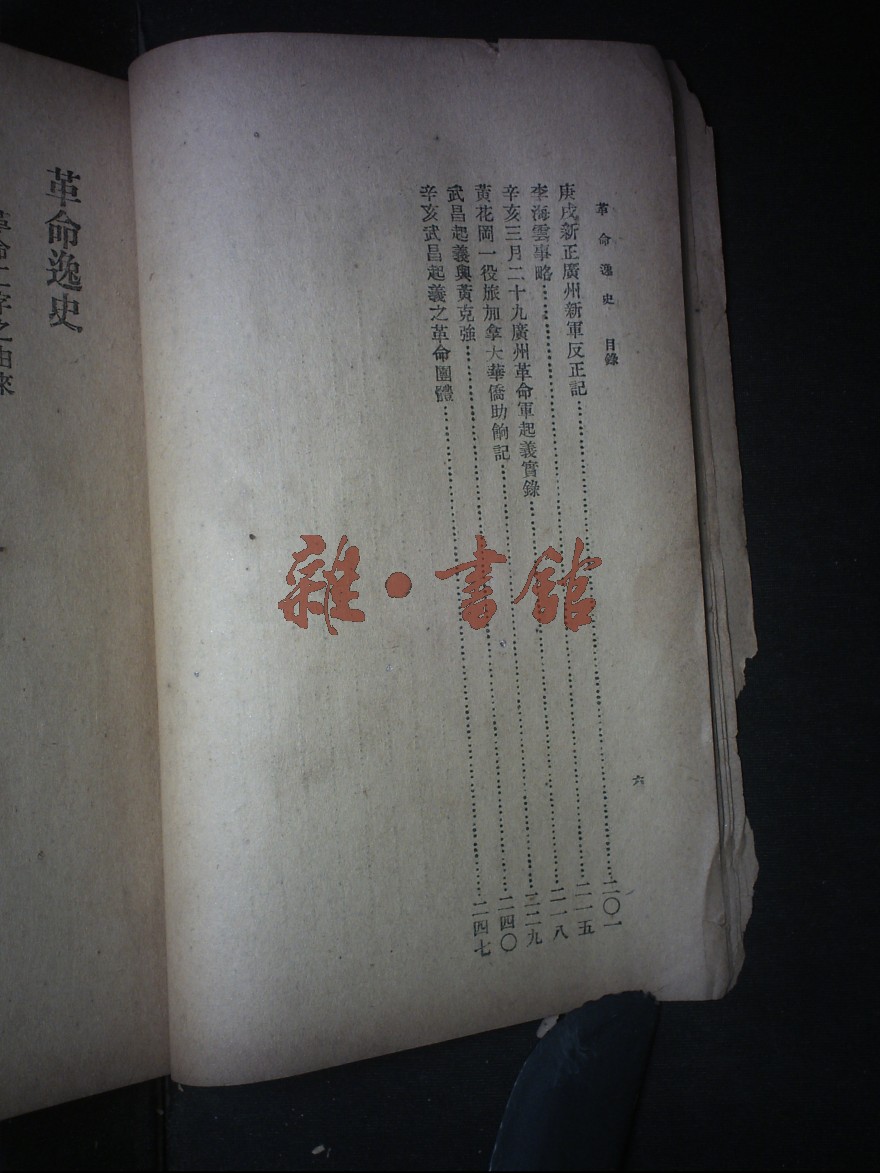 革命逸史 目錄
六
庚戌新正廣州新軍反正記……二〇一
李海雲事略……二一五
辛亥三月二十九廣州革命軍起義實錄……二一八
黃花岡一役旅加拿大華僑助餉記……二二九
武昌起義與黃克強……二四〇
辛亥武昌起義之革命團體……二四七
革命逸史
革命二字之由來
雜·書館